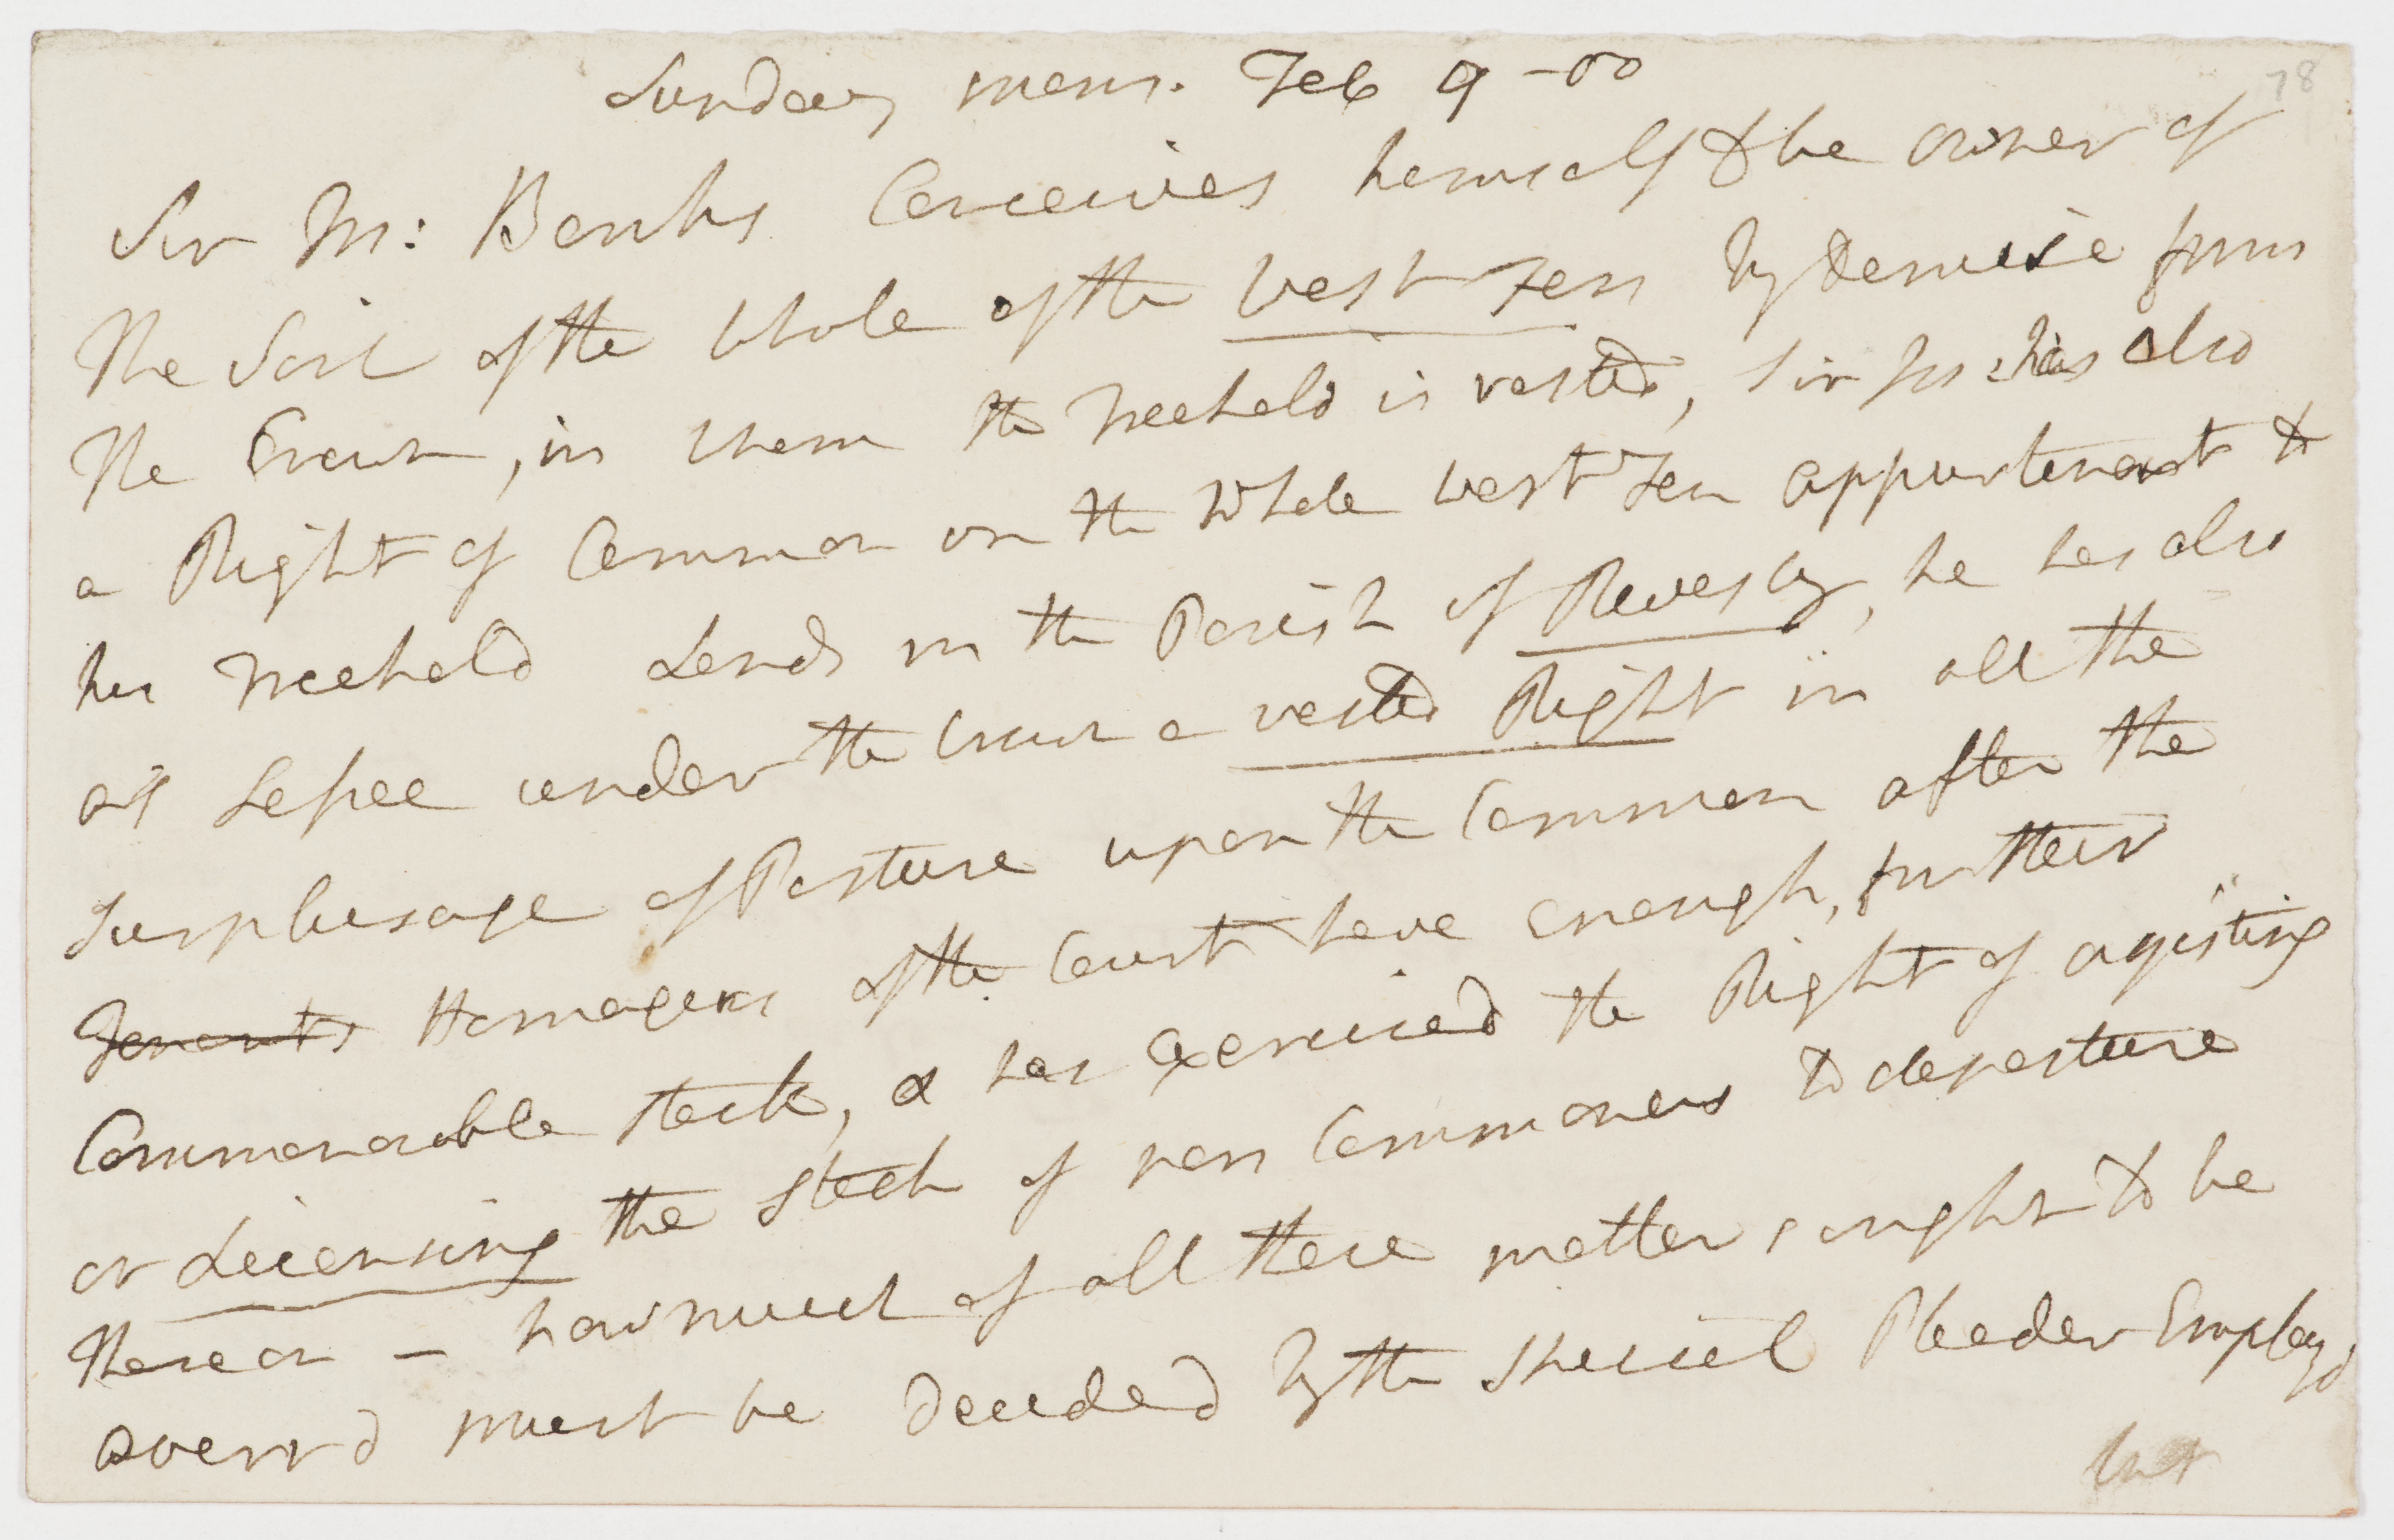 Sunday morn. Feb 9 - 00
78
Sir M: Banks Conceives himself to be owner of
the Soil of the whole of the West Fen by demise from
the Crown, in whom the Freehold is vested, Sir Jos: has also
a Right of Common on the whole West Fen appurtenant to
his Freehold Lands in the Parish of Revesby, he has also
as Lessee under the Crown a vested Right in all the
Surplusage of Pasture upon the Common after the
Tenants Homagers of the Court have enough, for their
Commonable stock, & has exercised the Right of agisting
or Licensing the Stock of non Commoners to depasture
thereon - how much of all these matters ought to be
averrd must be decided by the special Pleader Employd
but